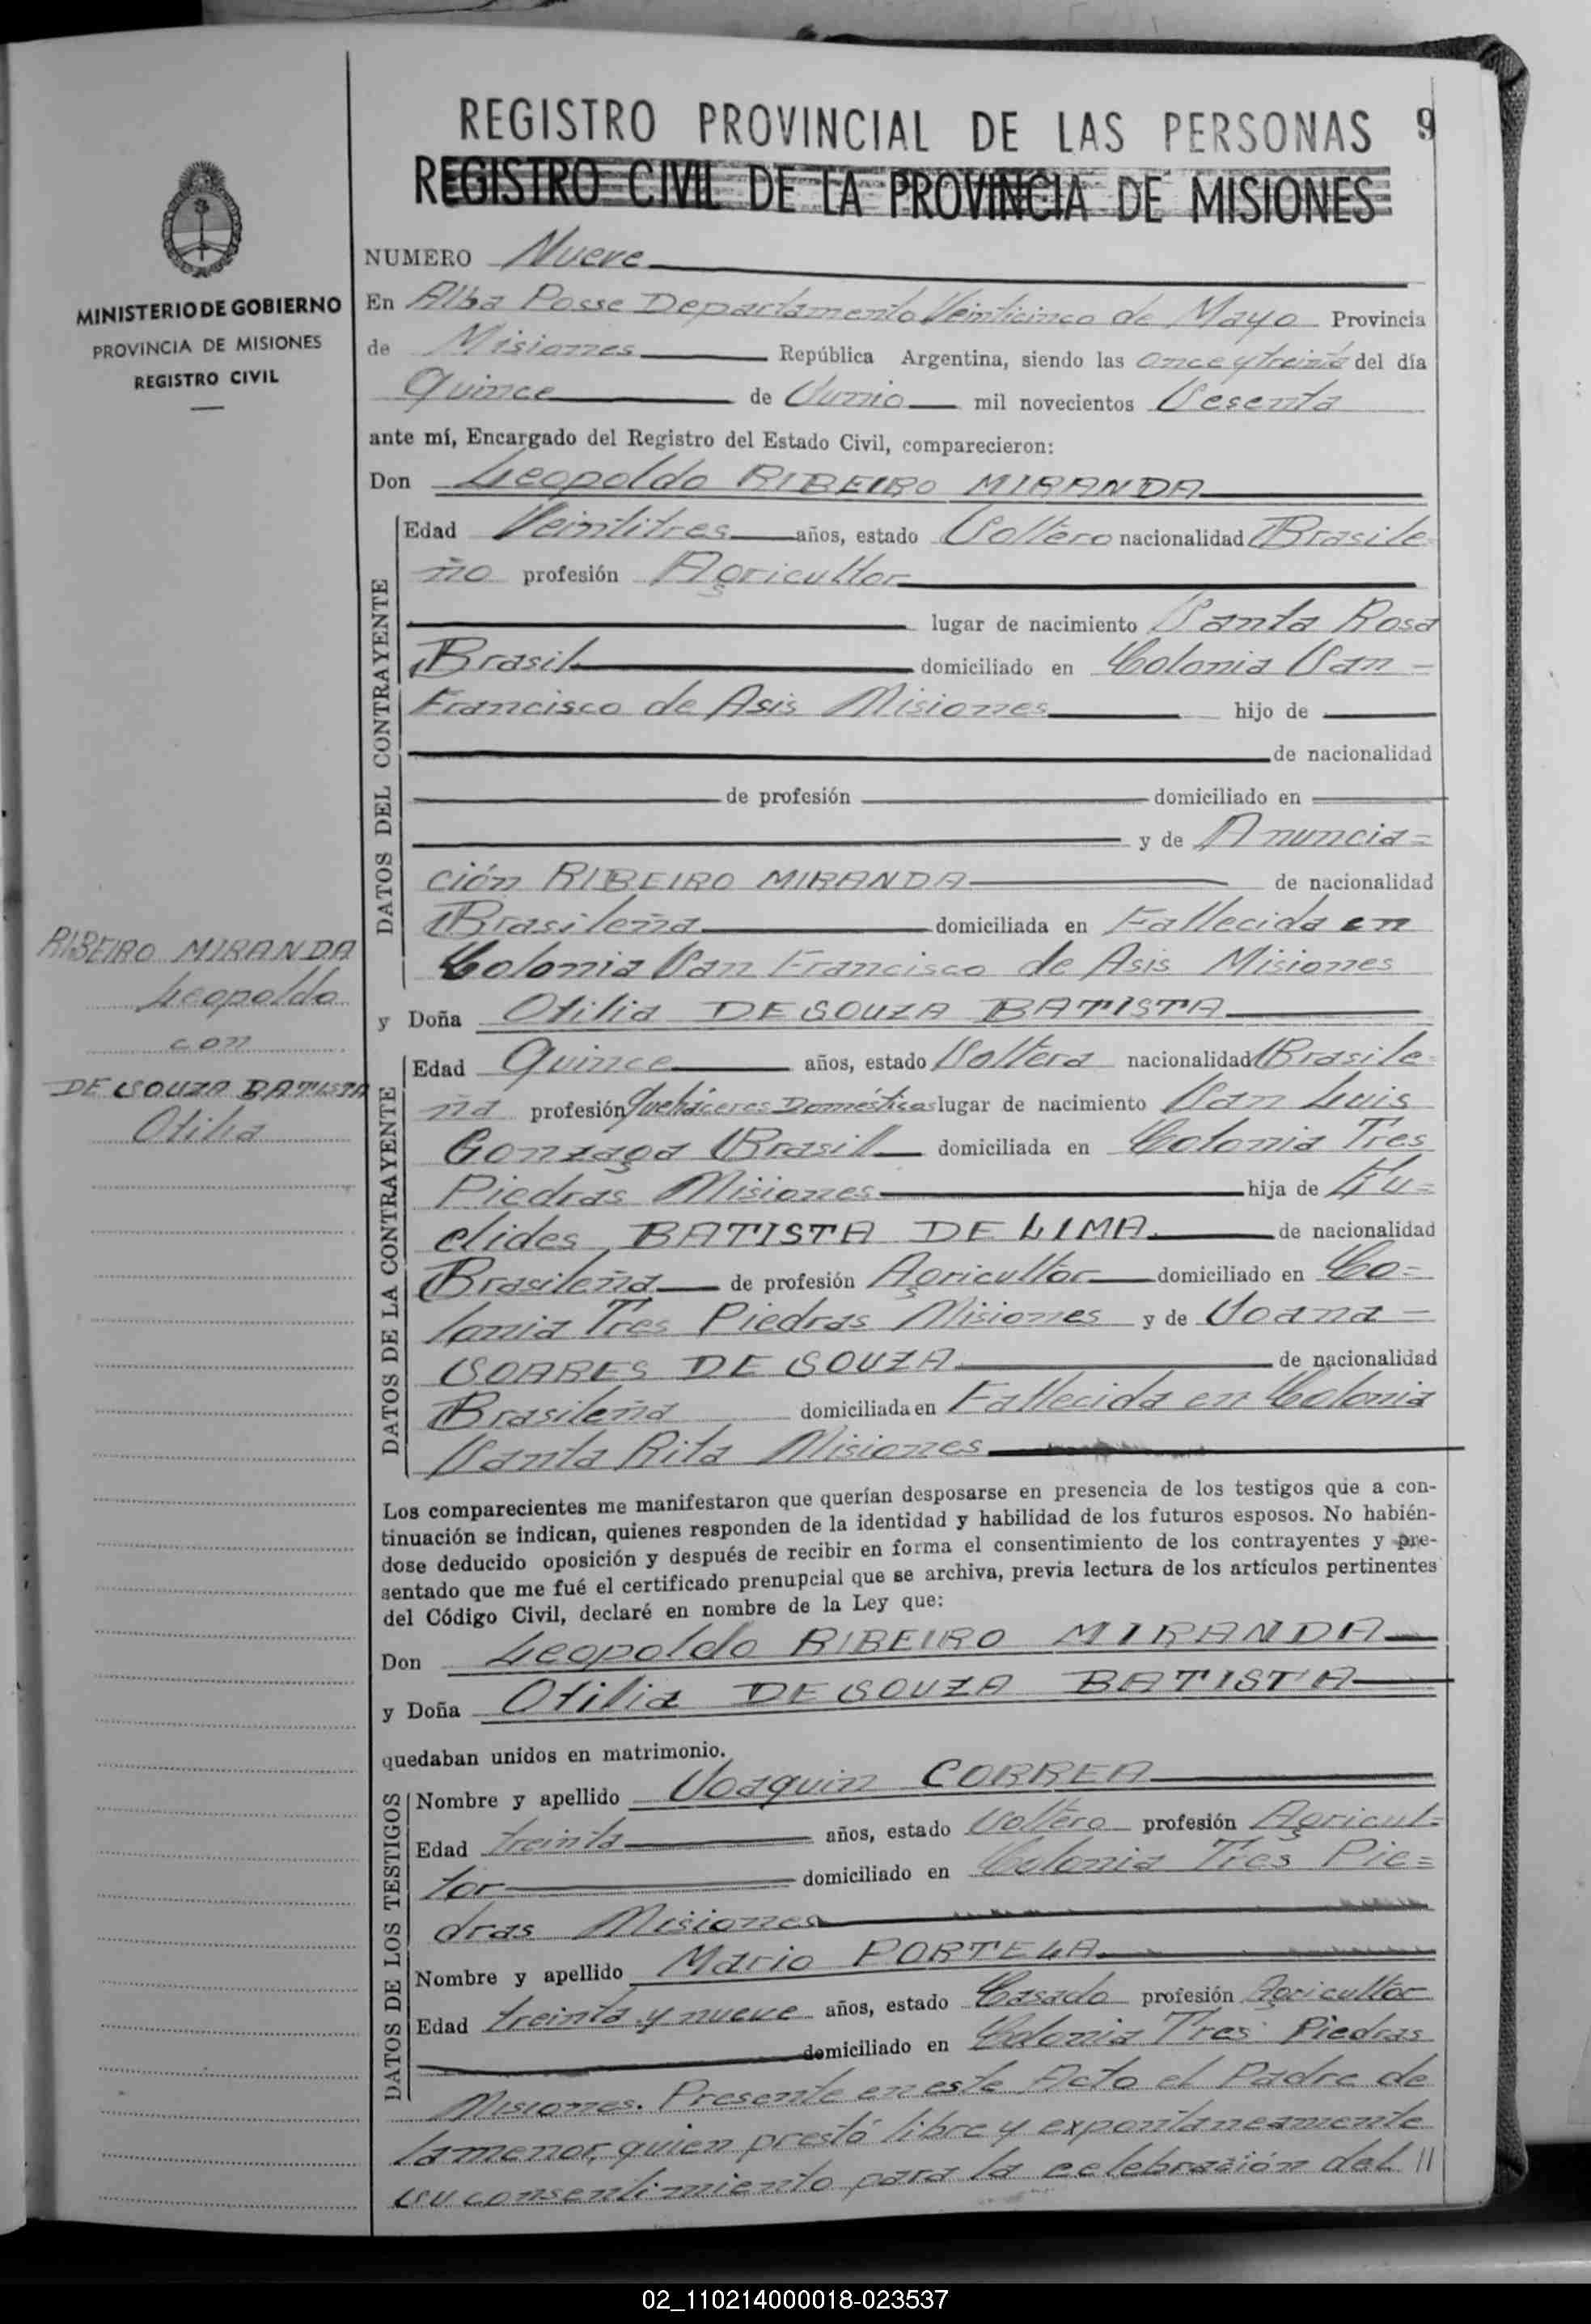 REGISTRO PROVINCIAL DE LAS PERSONAS 9
REGISTRO CIVIL DE LA PROVINCIA DE MISIONES
MINISTERIO DE GOBIERNO
PROVINCIA DE MISIONES
REGISTRO CIVIL
NUMERO Nueve
En Alba Posse Departamento Veinticinco de Mayo Provincia
de Misiones República Argentina, siendo las once y treinta del día
Quince de Junio mil novecientos Sesenta
ante mí, Encargado del Registro del Estado Civil, comparecieron:
Don Leopoldo RIBEIRO MIRANDA
DATOS DEL CONTRAYENTE
Edad Veintitres años, estado Soltero nacionalidad Brasile
ño profesión Agricultor
lugar de nacimiento Santa Rosa
Brasil domiciliado en Colonia San -
Francisco de Asis Misiones hijo de
de nacionalidad
de profesión domiciliado en
y de Anuncia=
ción RIBEIRO MIRANDA de nacionalidad
Brasileña domiciliada en Fallecida en
Colonia San Francisco de Asis Misiones
RIBEIRO MIRANDA
Leopoldo
con
DE SOUZA BATISTA
Otilia
y Doña Otilia DE SOUZA BATISTA
DATOS DE LA CONTRAYENTE
Edad Quince años, estado Soltera nacionalidad Brasile
ña profesión Quehaceres Domésticos lugar de nacimiento San Luis
Gonzaga Brasil domiciliada en Colonia Tres
Piedras Misiones hija de Eu=
clides BATISTA DE LIMA de nacionalidad
Brasileña de profesión Agricultor domiciliado en Co=
lonia Tres Piedras Misiones y de Joana -
SOARES DE SOUZA de nacionalidad
Brasileña domiciliada en Fallecida en Colonia
Santa Rita Misiones
Los comparecientes me manifestaron que querían desposarse en presencia de los testigos que a con-
tinuación se indican, quienes responden de la identidad y habilidad de los futuros esposos. No habién-
dose deducido oposición y después de recibir en forma el consentimiento de los contrayentes y pre-
sentado que me fué el certificado prenupcial que se archiva, previa lectura de los artículos pertinentes
del Código Civil, declaré en nombre de la Ley que:
Don Leopoldo RIBEIRO MIRANDA
y Doña Otilia DE SOUZA BATISTA
quedaban unidos en matrimonio.
DATOS DE LOS TESTIGOS
Nombre y apellido Joaquin CORREA
Edad treinta años, estado Soltero profesión Agricul=
tor domiciliado en Colonia Tres Pie=
dras Misiones
Nombre y apellido Mario PORTELA
Edad treinta y nueve años, estado Casado profesión Agricultor
domiciliado en Colonia Tres Piedras
Misiones. Presente en este Acto el Padre de
la menor, quien prestó libre y expontaneamente
su consentimiento para la celebración del //
02_110214000018-023537